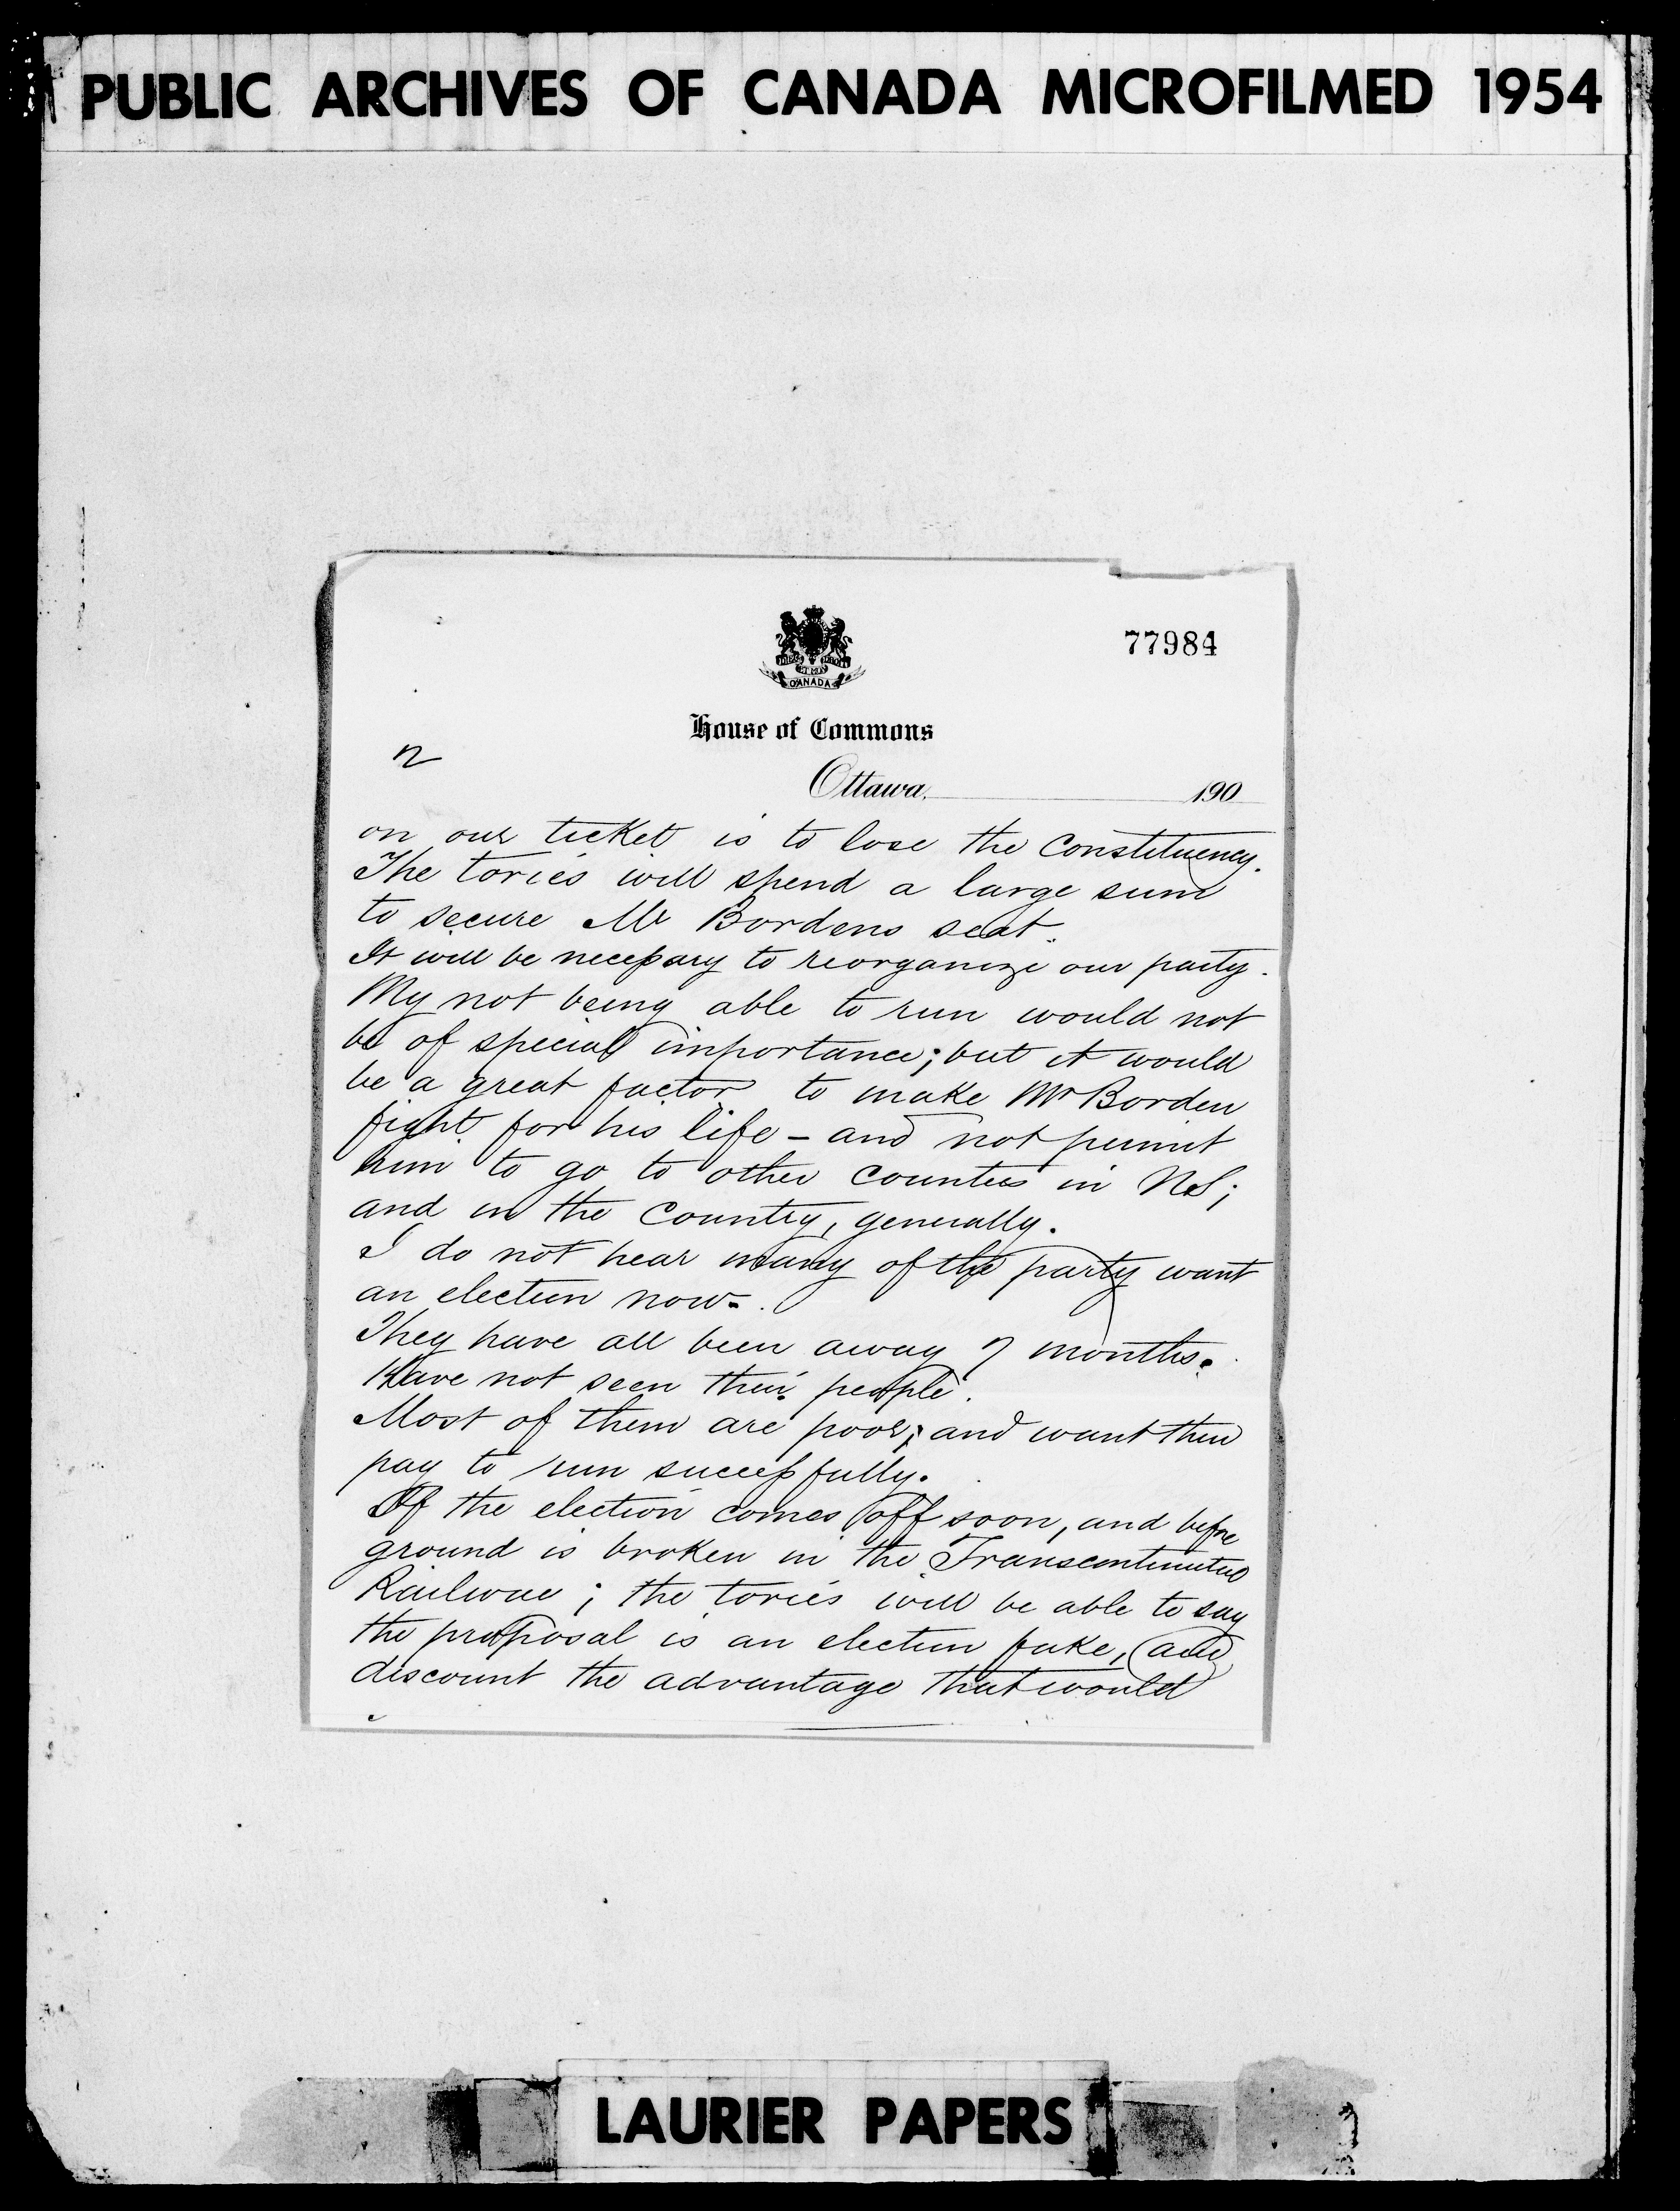 PUBLIC ARCHIVES OF CANADA MICROFILMED 1954
77984
CANADA
House of Commons
2
Ottawa, 190
on our ticket is to lose the constituency.
The tories will spend a large sum
to secure Mr Bordens seat.
It will be necessary to reorganize our party.
My not being able to run would not
be of special importance; but it would
be a great factor to make Mr Borden
fight for his life – and not permit
him to go to other counties in NS;
and in the country, generally.
I do not hear many of the party want
an election now.
They have all been away 7 months.
Have not seen their people.
Most of them are poor; and want their
pay to run successfully.
If the election comes off soon, and before
ground is broken in the Transcontinental
Railway; the tories will be able to say
the proposal is an election fake, and
discount the advantage that would
LAURIER PAPERS